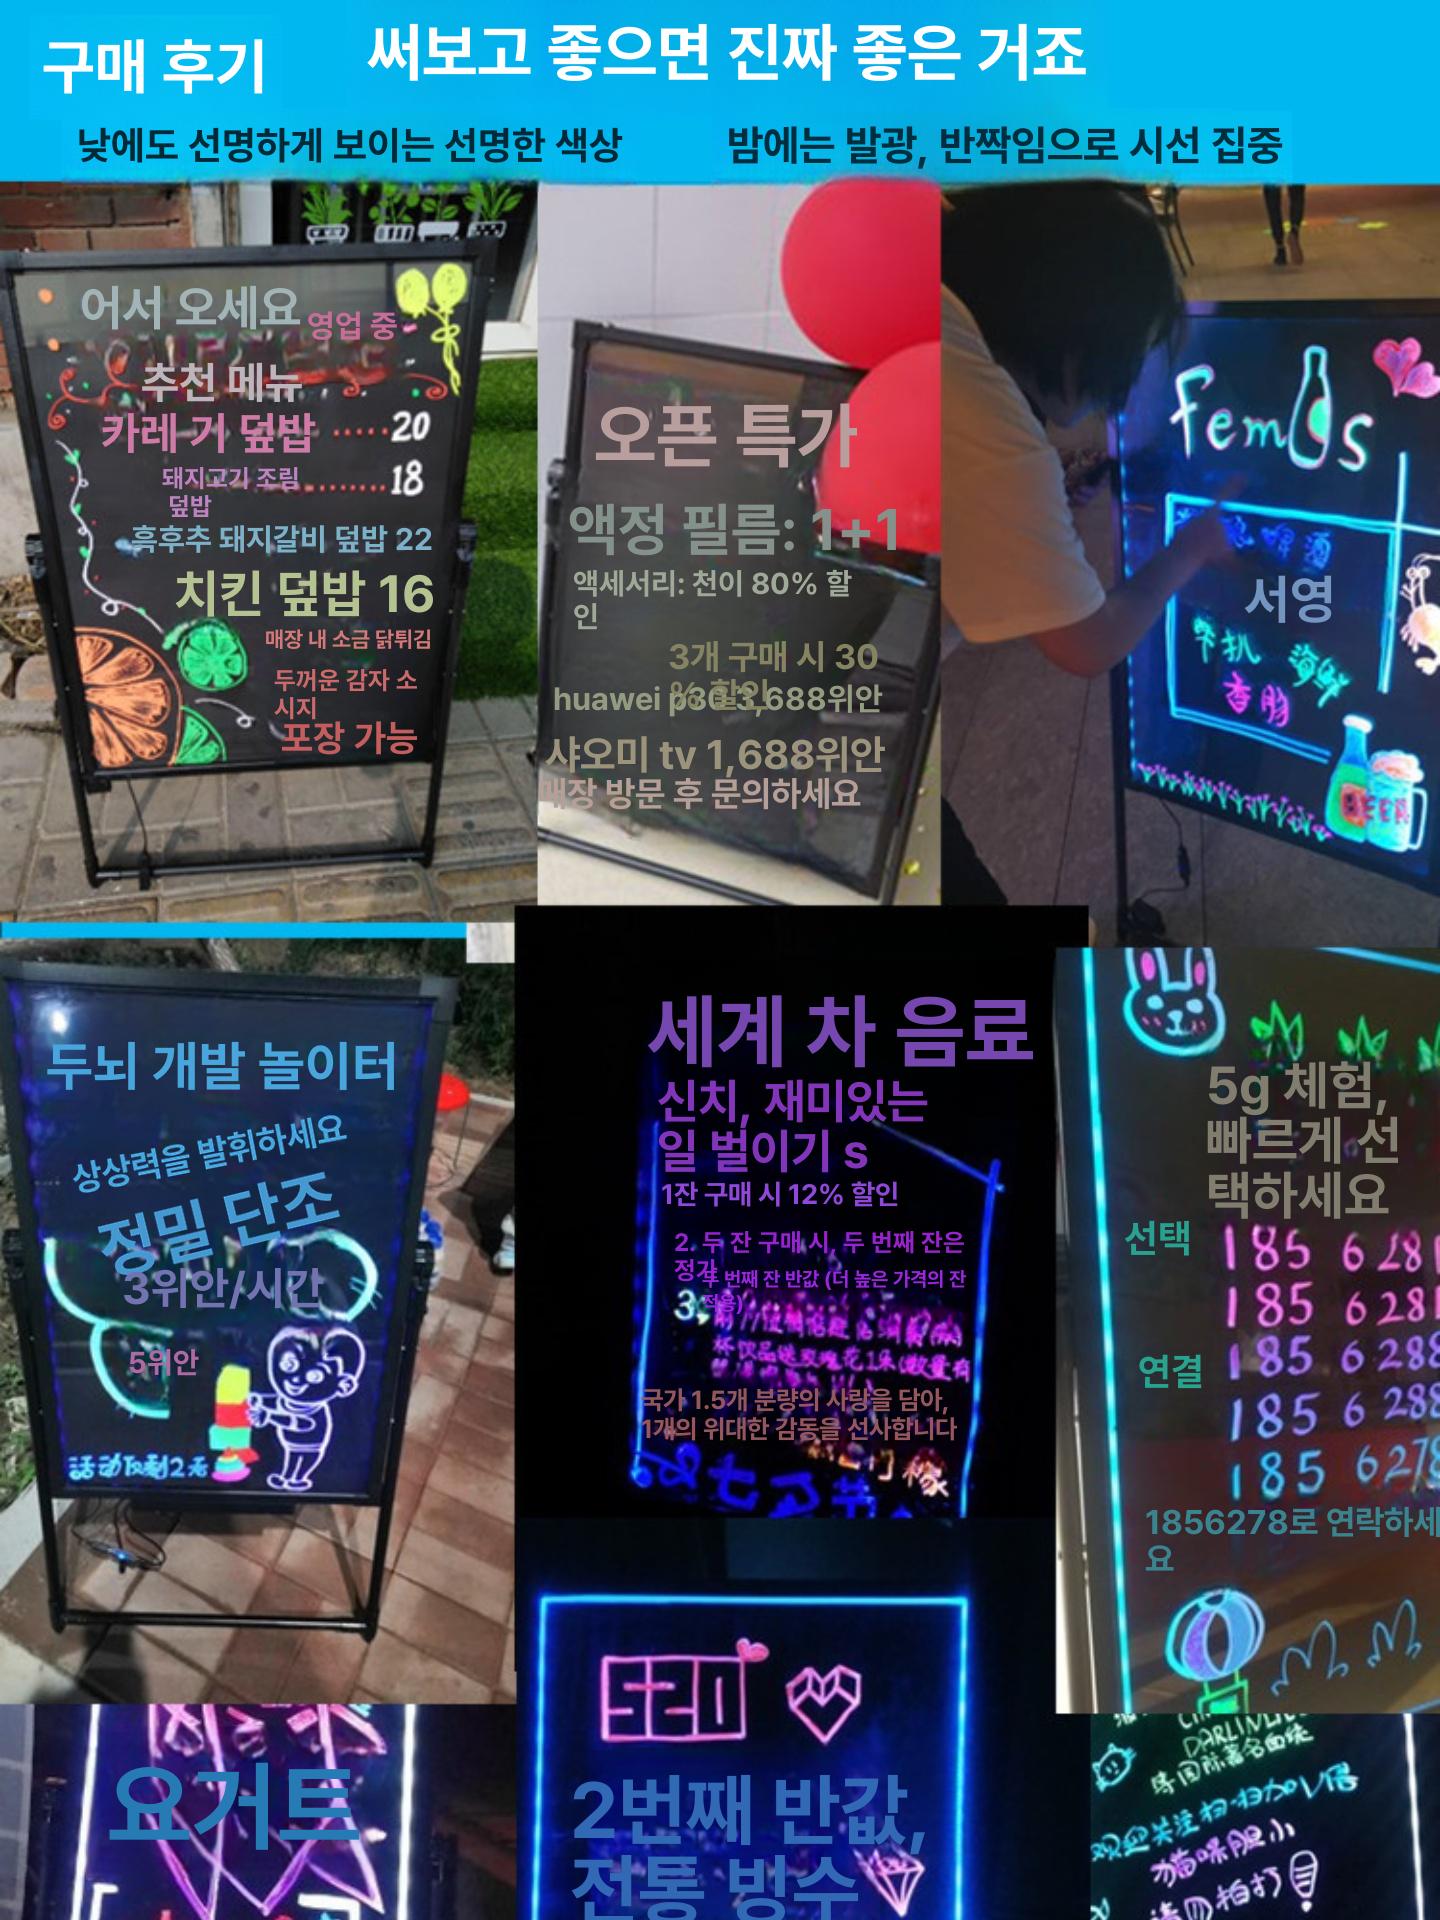 구매 후기
써보고 좋으면 진짜 좋은 거죠
낮에도 선명하게 보이는 선명한 색상
밤에는 발광, 반짝임으로 시선 집중
어서 오세요
영업 중
추천 메뉴
카레 거 덮밥 ..... 20
돼지고기 조림 ........ 18
덮밥
흑후추 돼지갈비 덮밥 22
치킨 덮밥 16
매장 내 소금 닭튀김
두꺼운 감자 소
시지
포장 가능
오픈 특가
액정 필름: 1+1
액세서리: 천이 80% 할
인
3개 구매 시 30
% 할인
huawei p30 3,688위안
샤오미 tv 1,688위안
매장 방문 후 문의하세요
Fem s
啤酒
서영
牛扒 海鲜
香肠
BEER
두뇌 개발 놀이터
상상력을 발휘하세요
정밀 단조
3위안/시간
5위안
活动仅剩2天
세계 차 음료
신치, 재미있는
일 벌이기 s
1잔 구매 시 12% 할인
2. 두 잔 구매 시, 두 번째 잔은
정가
두 번째 잔 반값 (더 높은 가격의 잔
적용)
3.
杯饮品送玫瑰花1朵(数量有
국가 1.5개 분량의 사랑을 담아,
1개의 위대한 감동을 선사합니다
5g 체험,
빠르게 선
택하세요
선택
185 6281
185 6281
연결
185 6288
185 6288
185 6278
1856278로 연락하세
요
520
요거트
2번째 반값,
전통 빙수
DARLIN
等国际著名曲绕
欢迎关注扫一扫加V信
猫咪胆小
请勿拍打